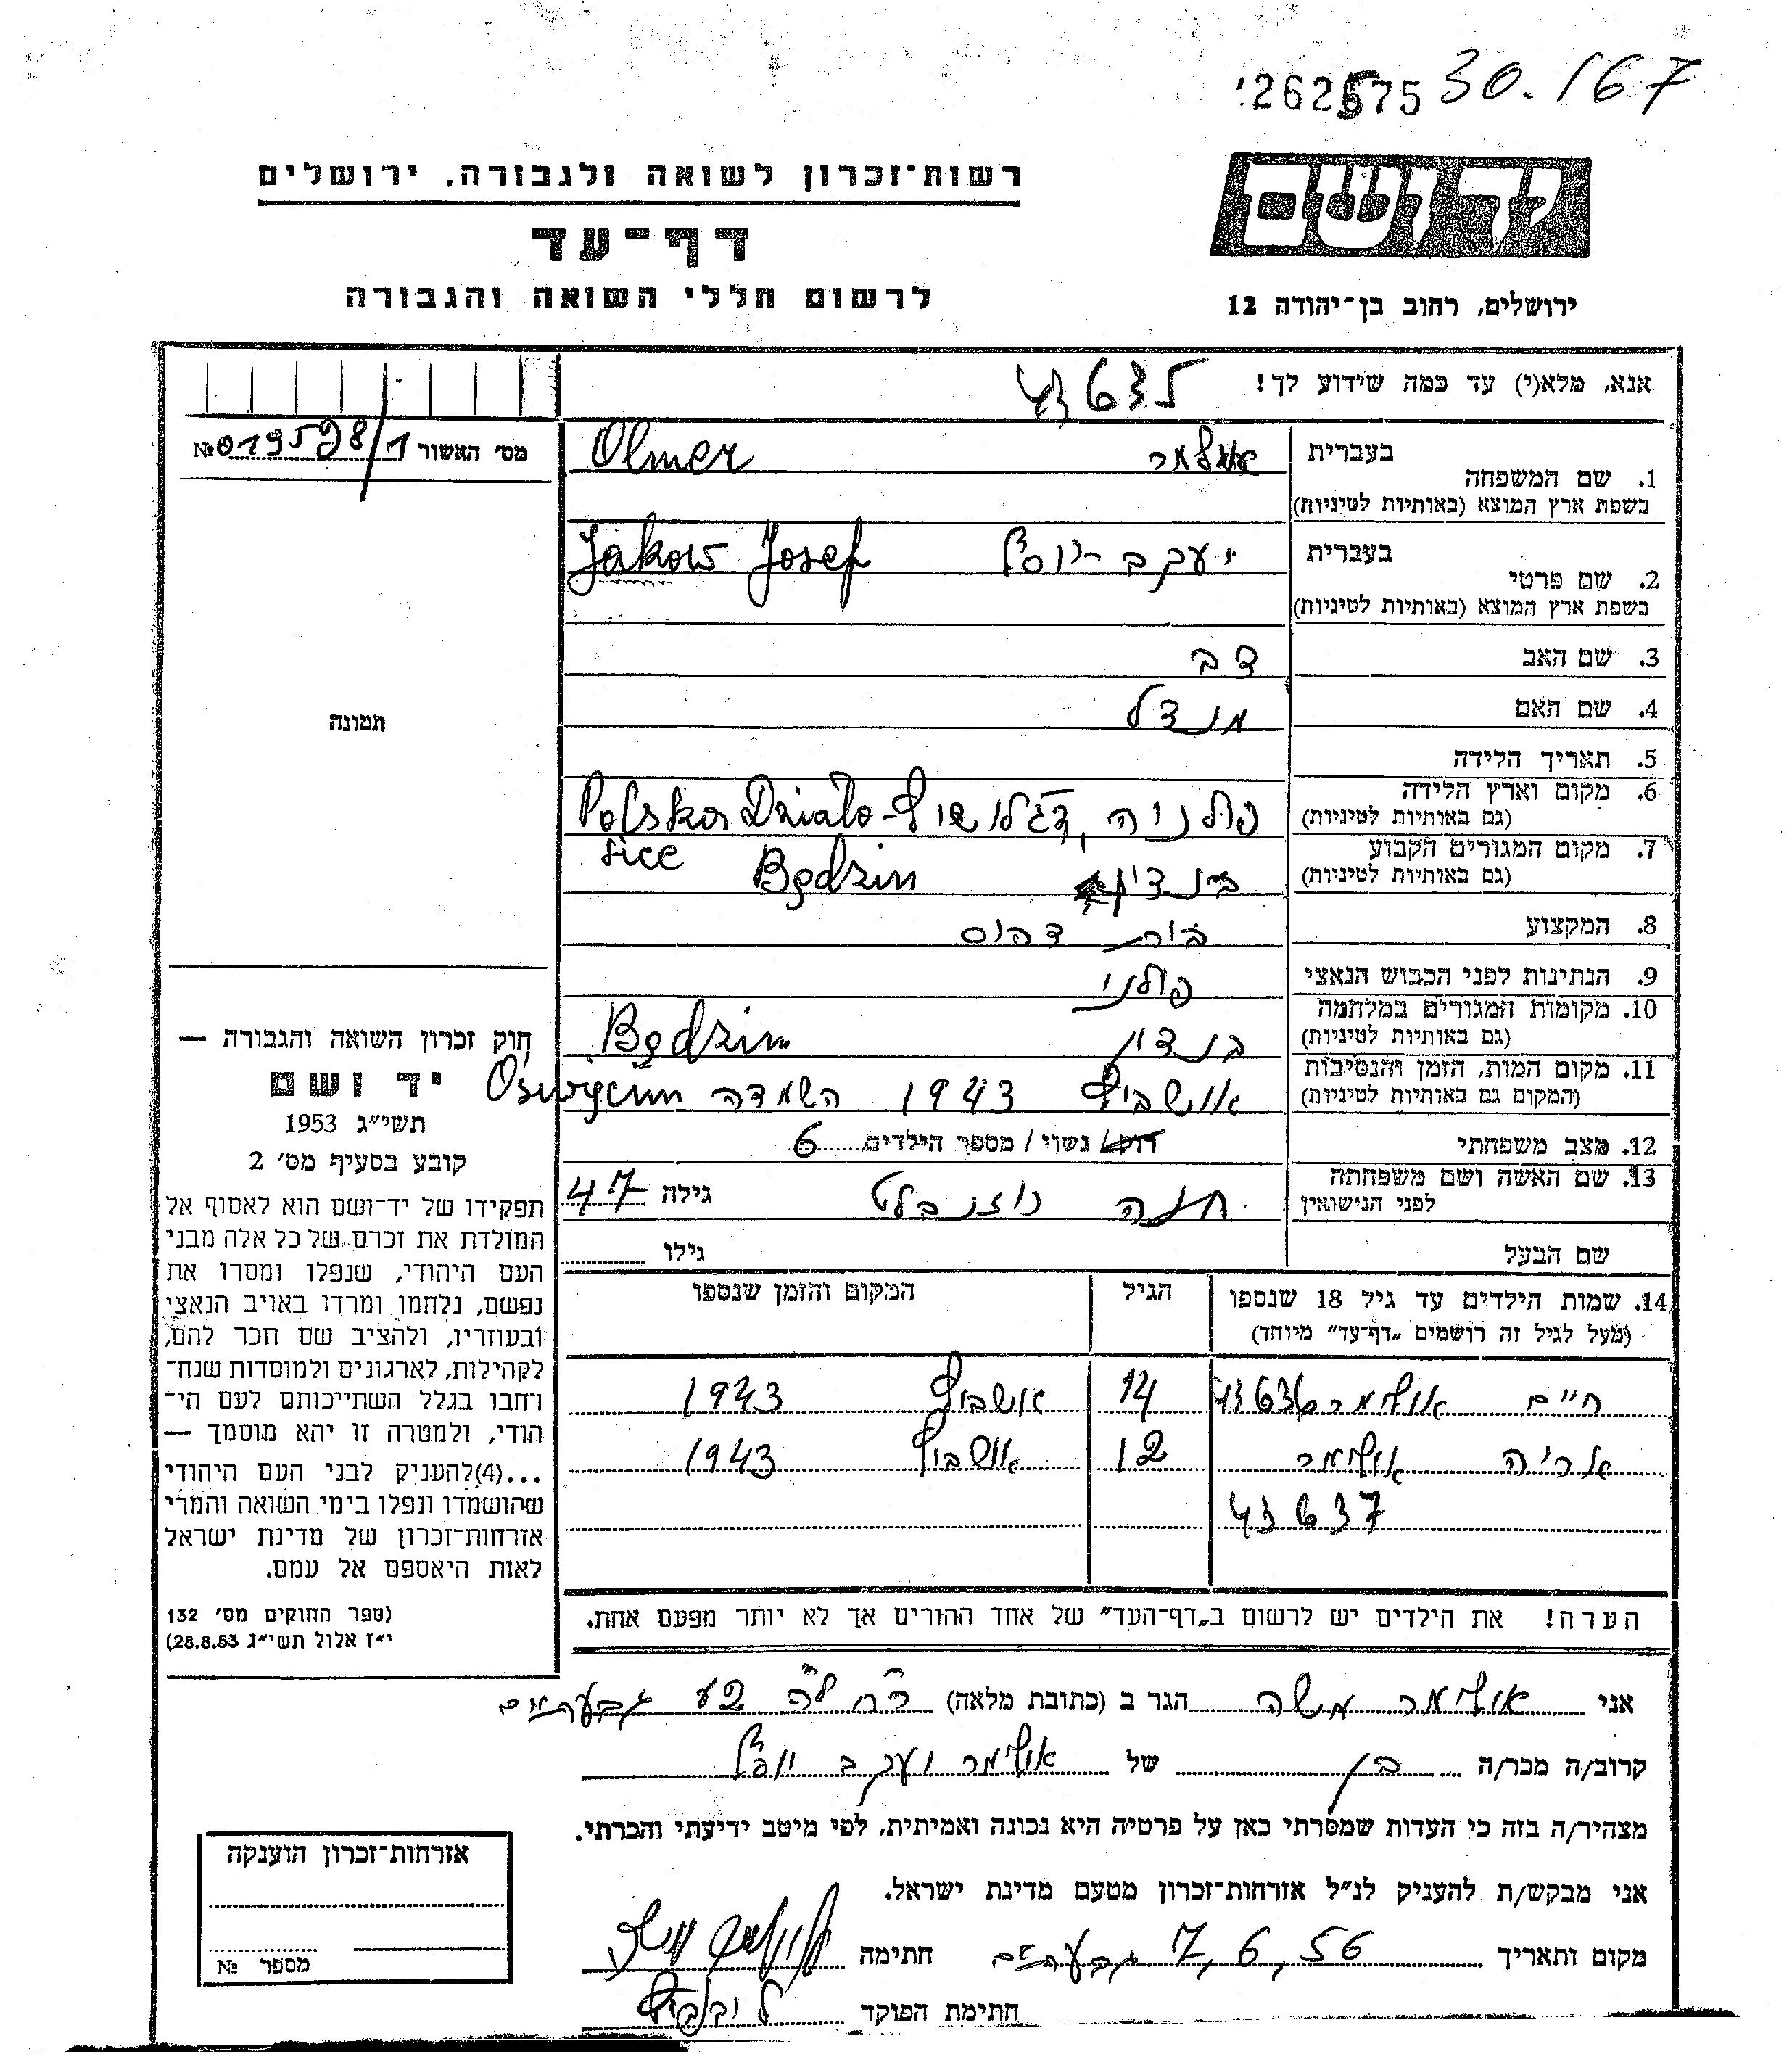 262575 30.167
רשות־זכרון לשואה ולגבורה, ירושלים
יד ושם
דף־עד
לרשום חללי השואה והגבורה
ירושלים, רחוב בן־יהודה 12
אנא, מלא(י) עד כמה שידוע לך! 43635
מס׳ האשור 019598/1 №
1. שם המשפחה בעברית אולמר Olmer
בשפת ארץ המוצא (באותיות לטיניות)
2. שם פרטי בעברית יעקב יוסף Jakow Josef
בשפת ארץ המוצא (באותיות לטיניות)
3. שם האב דב
4. שם האם מנדל
תמונה
5. תאריך הלידה
6. מקום וארץ הלידה פולניה, Polska Działo-
(גם באותיות לטיניות) sice
7. מקום המגורים הקבוע בנדין Będzin
(גם באותיות לטיניות)
8. המקצוע בית דפוס
9. הנתינות לפני הכבוש הנאצי פולני
10. מקומות המגורים במלחמה בנדין Będzin
(גם באותיות לטיניות)
11. מקום המות, הזמן והנסיבות אושביץ 1943 השמדה Oswięcim
(המקום גם באותיות לטיניות)
12. מצב משפחתי רוק/ נשוי / מספר הילדים 6
13. שם האשה ושם משפחתה חנה גילה 47
לפני הנישואין
שם הבעל גילו
14. שמות הילדים עד גיל 18 שנספו הגיל המקום והזמן שנספו
(מעל לגיל זה רושמים „דף־עד” מיוחד)
חיים אולמר 43636 14 אושביץ 1943
אריה אולמר 12 אושביץ 1943
43637
הערה! את הילדים יש לרשום ב„דף־העד” של אחד ההורים אך לא יותר מפעם אחת.
חוק זכרון השואה והגבורה —
יד ושם
תשי״ג 1953
קובע בסעיף מס׳ 2
תפקידו של יד־ושם הוא לאסוף אל
המולדת את זכרם של כל אלה מבני
העם היהודי, שנפלו ומסרו את
נפשם, נלחמו ומרדו באויב הנאצי
ובעוזריו, ולהציב שם וזכר להם,
לקהילות, לארגונים ולמוסדות שנח־
רבו בגלל השתייכותם לעם הי־
הודי, ולמטרה זו יהא מוסמך —
...(4) להעניק לבני העם היהודי
שהושמדו ונפלו בימי השואה והמרי
אזרחות־זכרון של מדינת ישראל
לאות היאספם אל עמם.
(ספר החוקים מס׳ 132
י״ז אלול תשי״ג 28.8.53)
אני אולמר משה הגר ב (כתובת מלאה) גבעתיים
קרוב/ה מכר/ה בן של אולמר יעקב יוסף
מצהיר/ה בזה כי העדות שמסרתי כאן על פרטיה היא נכונה ואמיתית, לפי מיטב ידיעתי והכרתי.
אני מבקש/ת להעניק לנ״ל אזרחות־זכרון מטעם מדינת ישראל.
מקום ותאריך גבעתיים 7,6,56 חתימה
חתימת הפוקד
אזרחות־זכרון הוענקה
מספר №